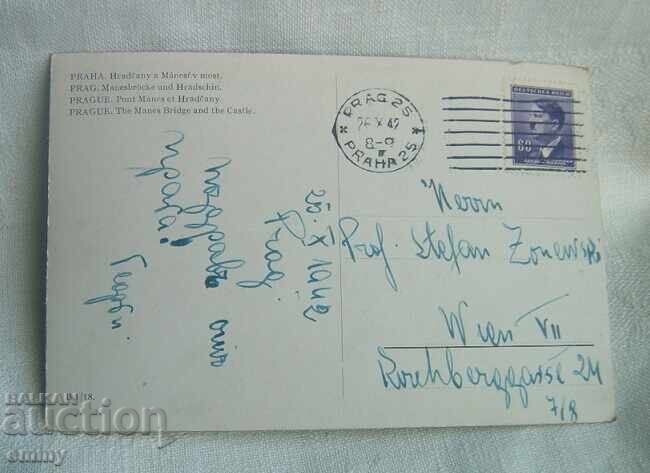 PRAHA. Hradčany a Mánesův most.
PRAG. Manesbrücke und Hradschin.
PRAGUE. Pont Manes et Hradčany.
PRAGUE. The Manes Bridge and the Castle.
PRAG 25
26.X.42
8-9
PRAHA 25
DEUTSCHES REICH
60
Herrn
Prof. Stefan
Wien VII
24
7/8
25. X 1942
Prag
Поздрави от
Прага!
Георги
B.J/18.
БАЛКАН
auction
emmy